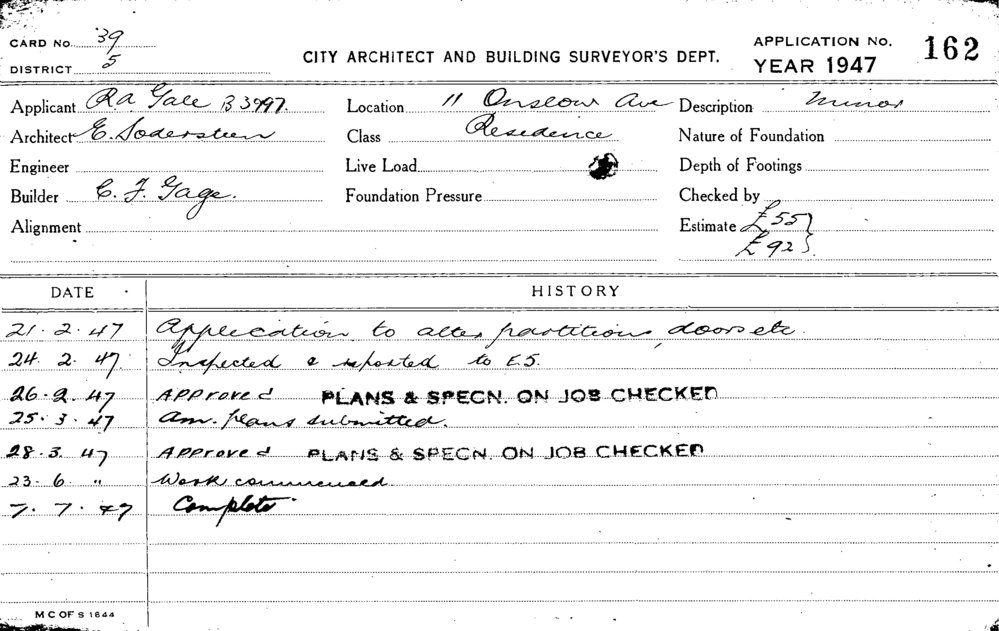 CARD No. 39
DISTRICT 5
CITY ARCHITECT AND BUILDING SURVEYOR'S DEPT.
APPLICATION No. 162
YEAR 1947
Applicant Ra Gale B3997. Location 11 Onslow Ave Description Minor
Architect E. Sodersteen Class Residence Nature of Foundation
Engineer Live Load Depth of Footings
Builder C. F. Gage. Foundation Pressure Checked by
Alignment Estimate £55
£92
DATE HISTORY
21. 2. 47 Application to alter partitions, doors etc.
24. 2. 47. Inspected & reported to E.S.
26. 2. 47 Approved PLANS & SPECN. ON JOB CHECKED
25. 3. 47 Am. plans submitted.
28. 3. 47 Approved PLANS & SPECN. ON JOB CHECKED
23. 6. " Work commenced
7. 7. 47 Complete
M C OF S 1644